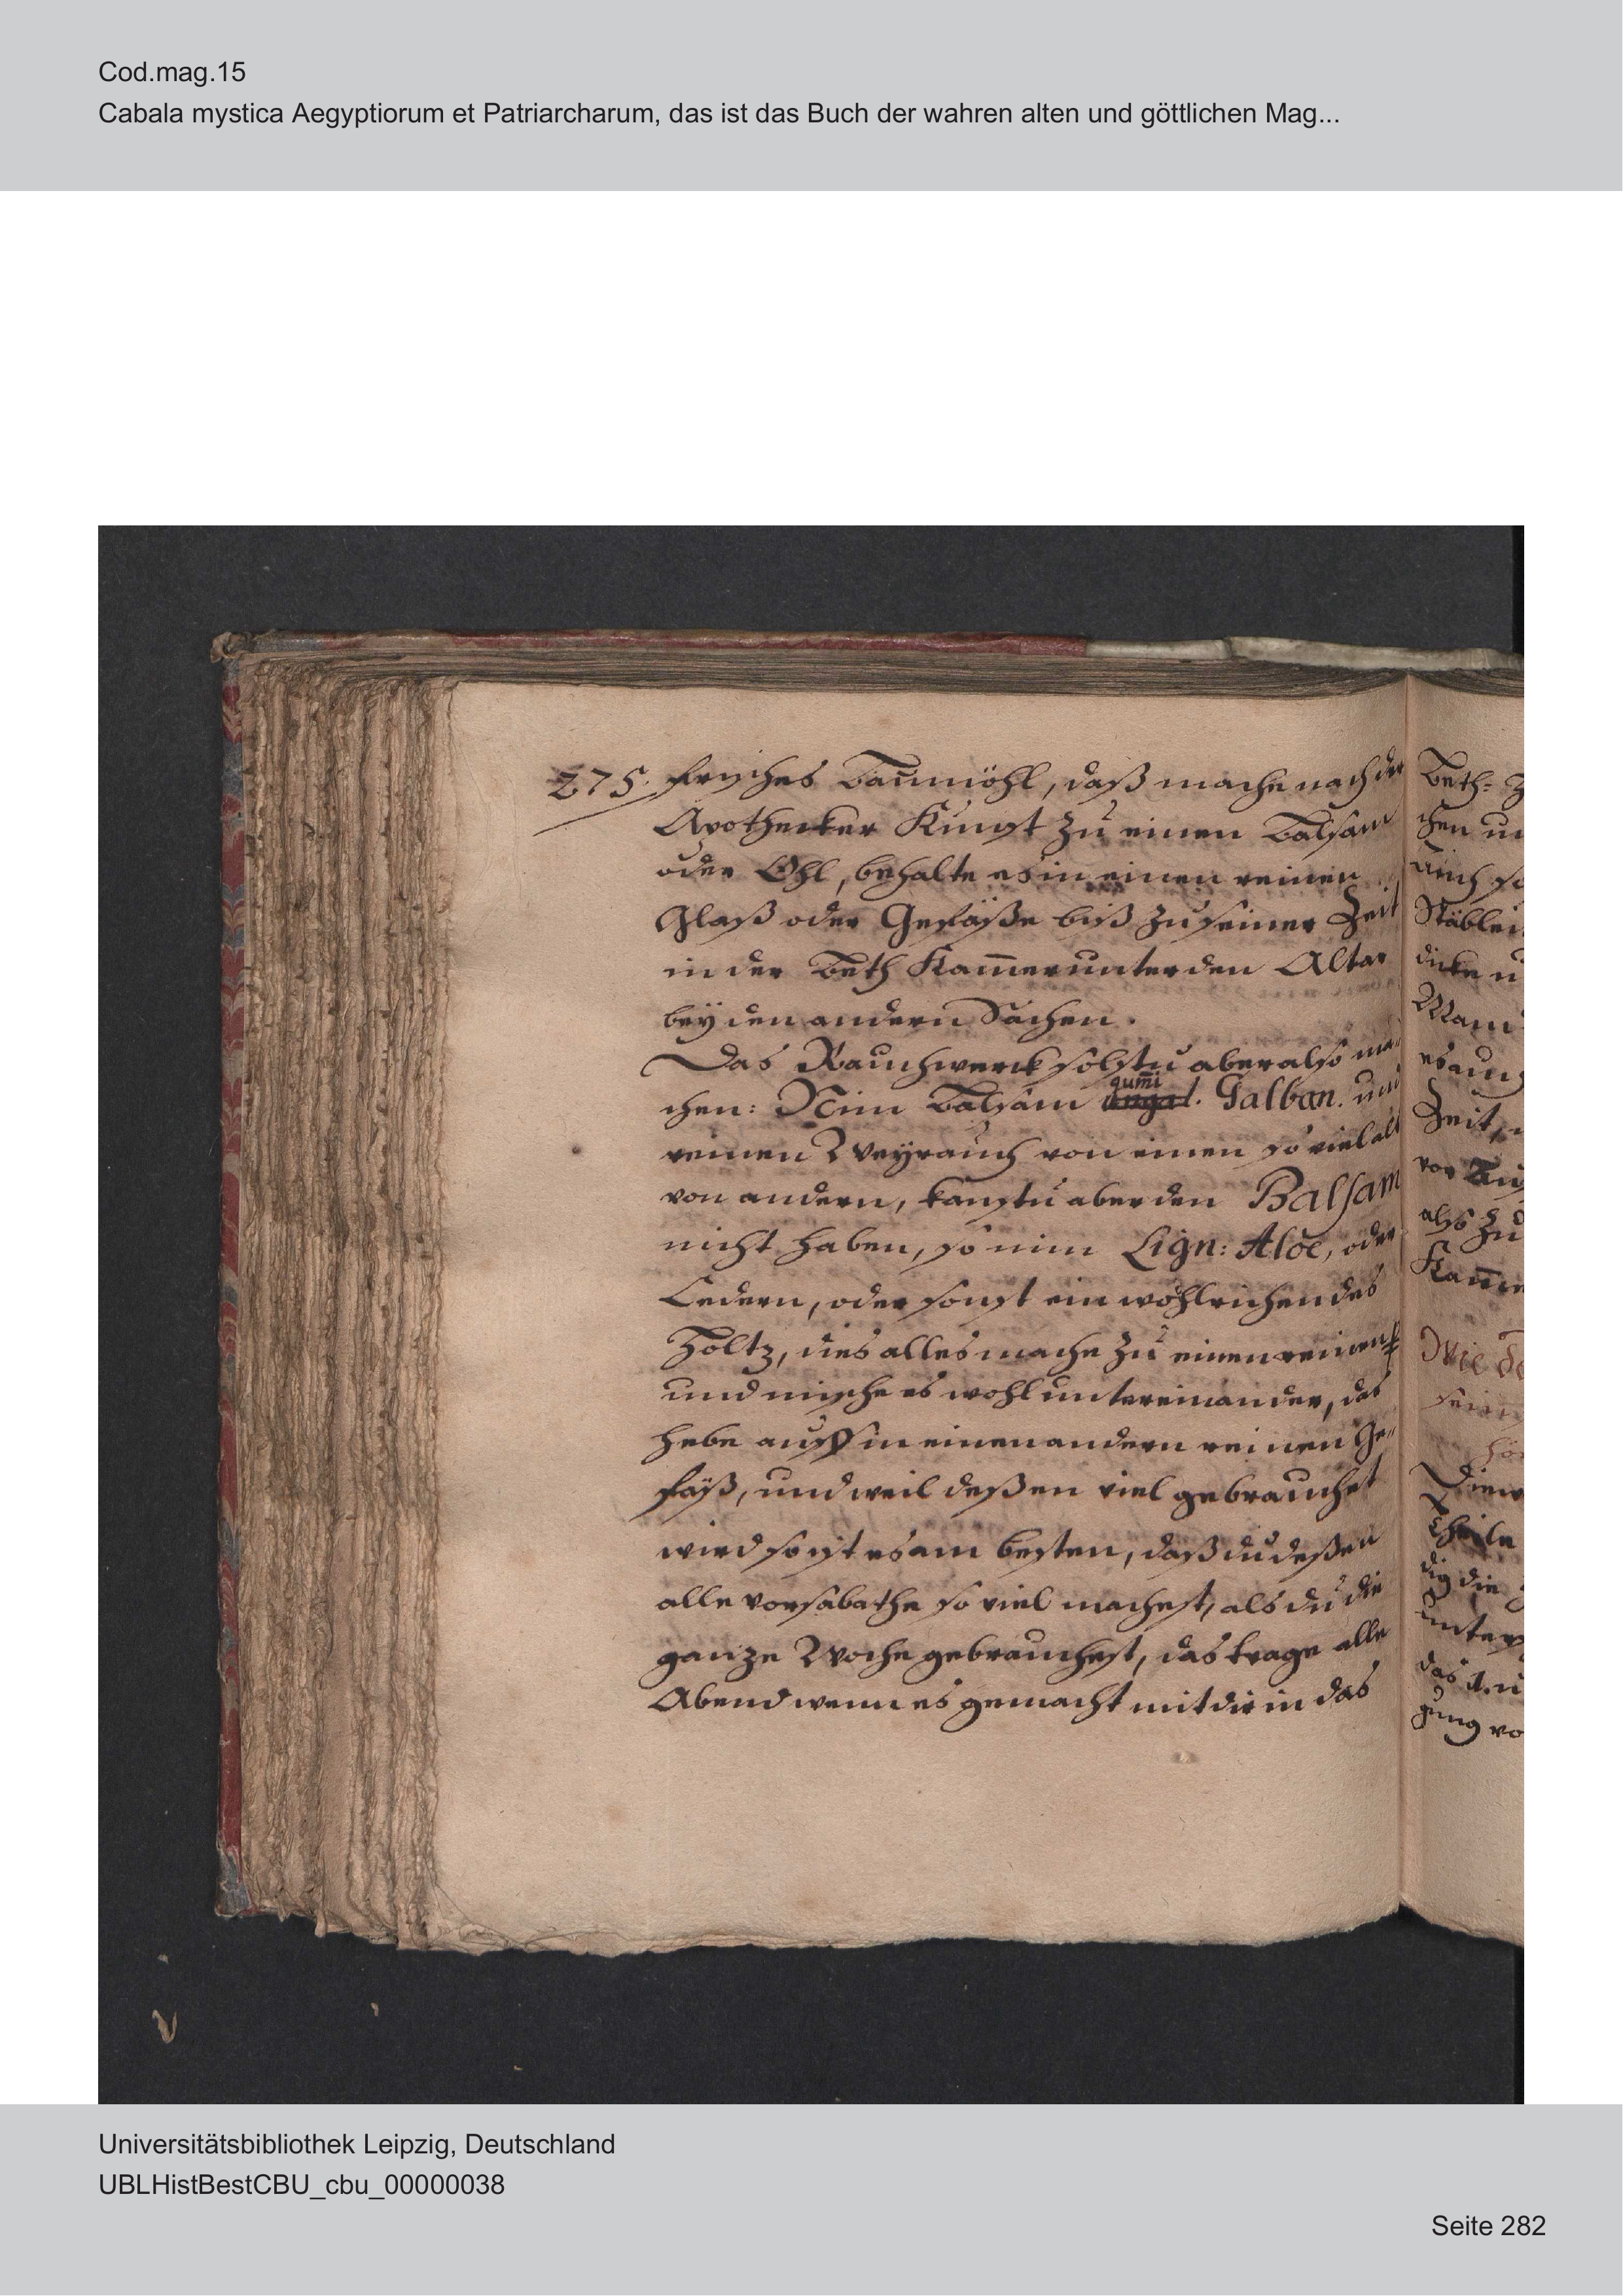 Cod.mag.15
Cabala mystica Aegyptiorum et Patriarcharum, das ist das Buch der wahren alten und göttlichen Mag...
275. frisches Baumöhl, daß mache nach der
Apothecker Kunst zu einen Balsam
oder Öhl, behalte es in einen reinen
Glaß oder Gefäße biß zu seiner Zeit
in der Beth Kam̄er unter den Altar
bey den andern Sachen.
Das Rauchwerck solstu aber also ma-
chen: Nim Balsam gum̄i Galban. und
reinen Weyrauch von einen so viel alß
von andern, kanstu aber den Balsam
nicht haben, so nim Lign: Aloe, oder
Cedern, oder sonst ein wohlrichendes
Holtz, dies alles mache zu einen reinen
und mische es wohl untereinander, das
hebe auff in einen andern reinen Ge-
fäß, und weil deßen viel gebrauchet
wird so ist es am besten, daß du deßen
alle vorsabathe so viel machest, als du die
ganze Woche gebrauchest, das trage alle
Abend wenn es gemacht mit dir in das
Beth-
chen
auch so
Stäblei
dicke u
es auch
Zeit,
vor
also zu
Kam̄e
Wie de
sein
hö
Theile
dig die
unter
das
gung vo
Universitätsbibliothek Leipzig, Deutschland
UBLHistBestCBU_cbu_00000038
Seite 282